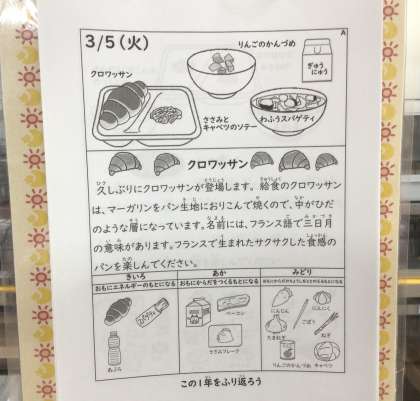 3/5(火)
A
りんごのかんづめ
クロワッサン
ぎゅうにゅう
ささみとキャベツのソテー
わふうスパゲティ
クロワッサン
久しぶりにクロワッサンが登場します。給食のクロワッサン
は、マーガリンをパン生地におりこんで焼くので、中がひだ
のような層になっています。名前には、フランス語で三日月
の意味があります。フランスで生まれたサクサクした食感の
パンを楽しんでください。
きいろ
あか
みどり
おもにエネルギーのもとになる
おもにからだをつくるもとになる
ベーコン
ささみフレーク
あぶら
にんじん
にんにく
ごぼう
たまねぎ
ねぎ
りんごのかんづめ
キャベツ
この1年をふり返ろう